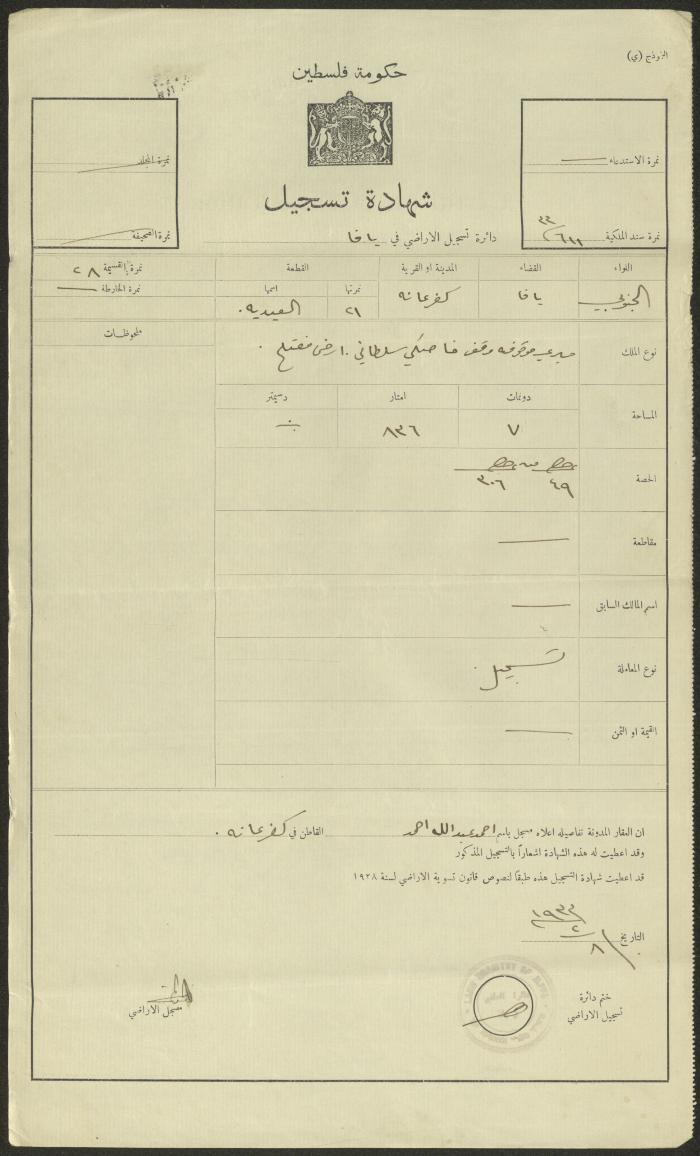 النموذج (ي)
حكومة فلسطين
نمرة الاستدعاء
نمرة المجلد
شهادة تسجيل
نمرة سند الملكية ٦١١ / ٣٣
دائرة تسجيل الاراضي في يافا
نمرة الصحيفة
اللواء القضاء المدينة او القرية القطعة نمرة القسيمة ٢٨
نمرتها اسمها نمرة الخارطة
الجنوبي يافا كفرعانه ٢١
ملحوظات
نوع الملك ميري موقوفه وقف خاصكي سلطاني. ارض مفتلح.
دونمات امتار دسيمتر
المساحة ٧ ٨٣٦
الحصة
٤٩ ٣٠٦
مقاطعة
اسم المالك السابق
نوع المعاملة تسجيل.
القيمة او الثمن
ان العقار المدونة تفاصيله اعلاه مسجل باسم احمد عبدالله احمد القاطن في كفرعانه.
وقد اعطيت له هذه الشهادة اشعاراً بالتسجيل المذكور
قد اعطيت شهادة التسجيل هذه طبقا لنصوص قانون تسوية الاراضي لسنة ١٩٢٨
التاريخ ٨/٢/١٩٣٣
ختم دائرة
تسجيل الاراضي
مسجل الاراضي
LAND REGISTRY OF